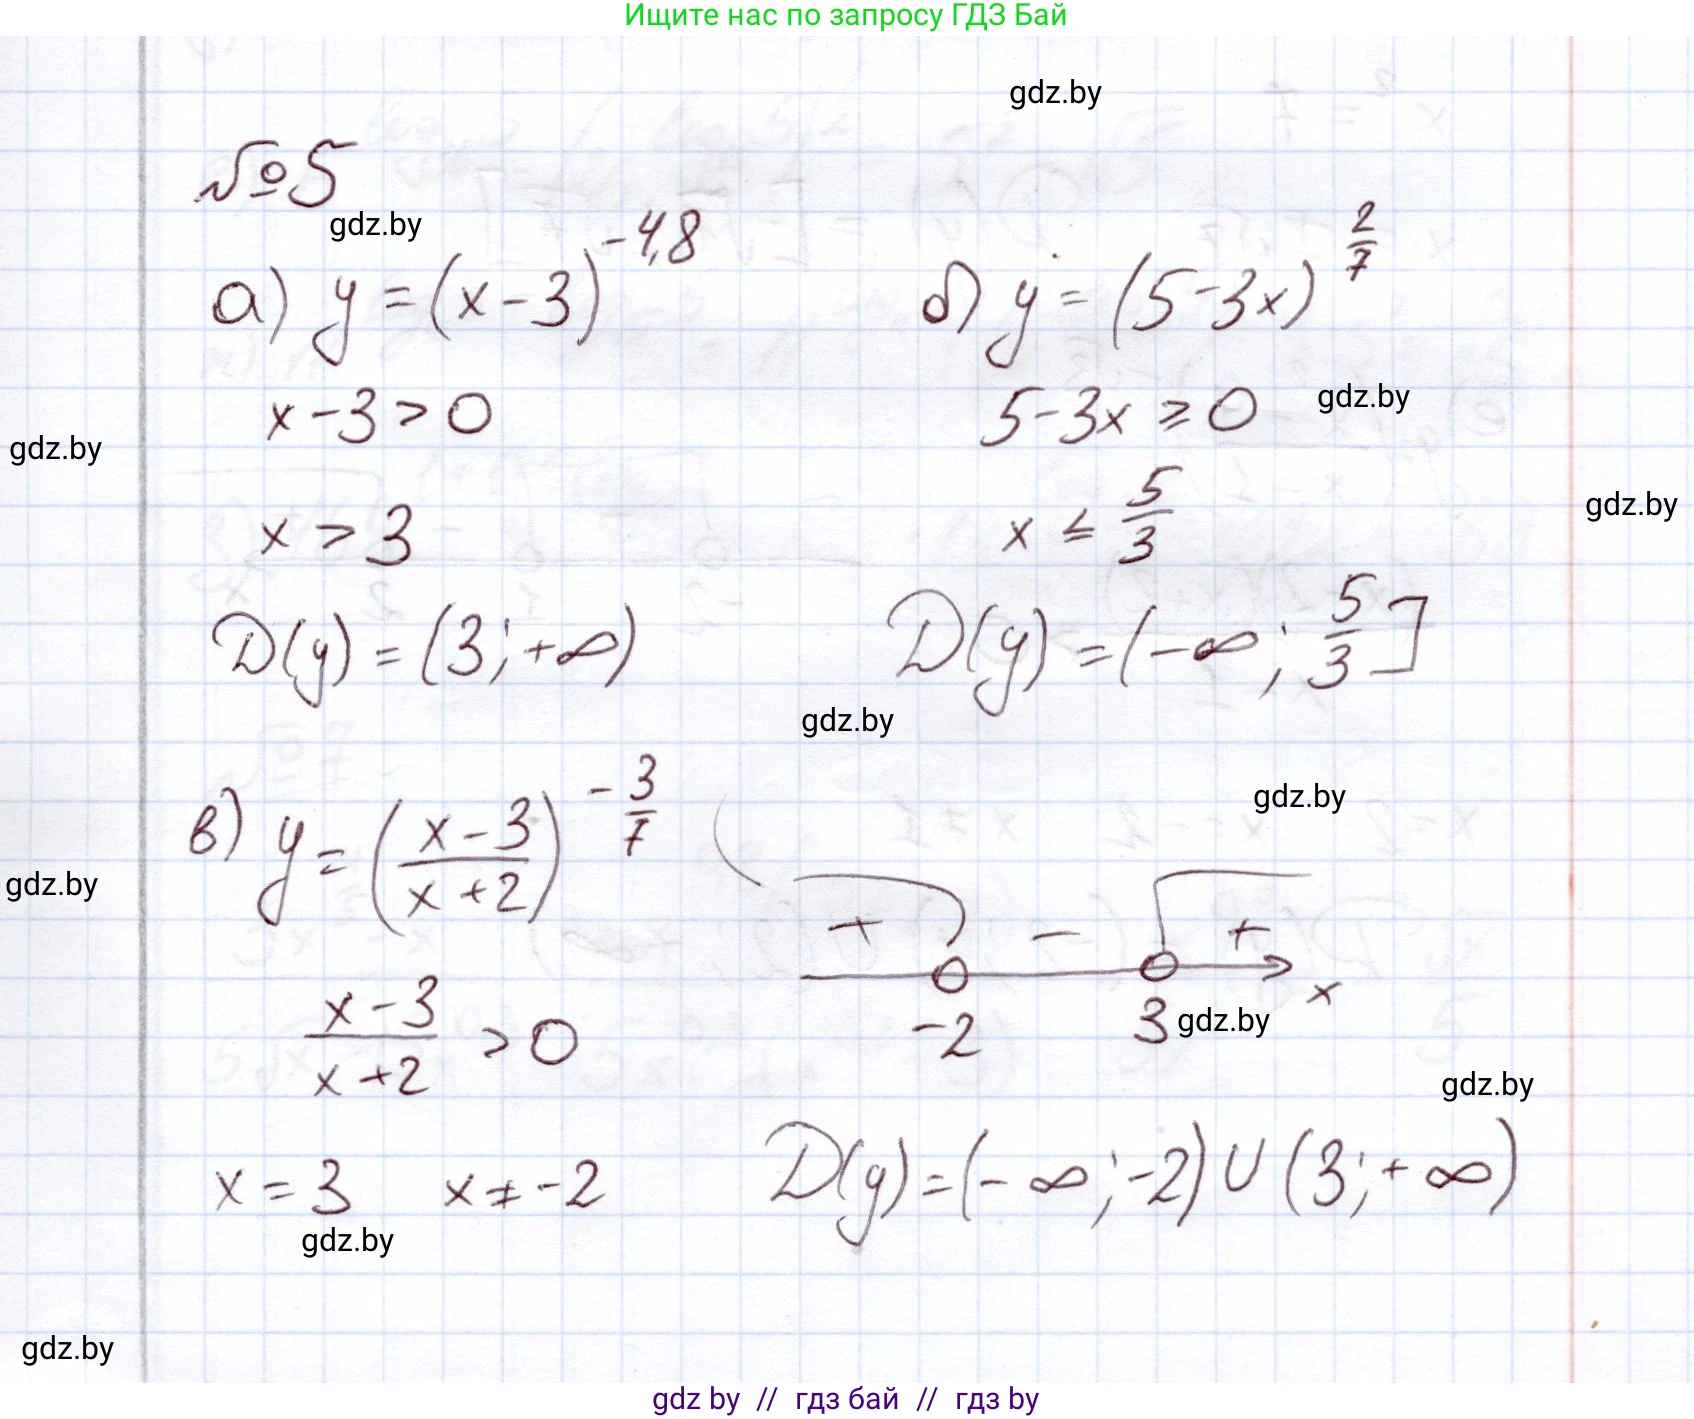 Ищите нас по запросу ГДЗ Бай
gdz.by
№5
gdz.by
а) y = (x-3)^{-4,8}
б) y = (5-3x)^{\frac{2}{7}}
x-3 > 0
5-3x ≥ 0
gdz.by
gdz.by
x > 3
x ≤ \frac{5}{3}
gdz.by
D(y) = (3; +∞)
D(y) = (-∞; \frac{5}{3}]
gdz.by
в) y = (\frac{x-3}{x+2})^{-\frac{3}{7}}
gdz.by
gdz.by
+ − +
-2 3 x
gdz.by
\frac{x-3}{x+2} > 0
gdz.by
x = 3 x ≠ -2
D(y) = (-∞; -2) ∪ (3; +∞)
gdz.by
gdz.by
gdz by // гдз бай // гдз by